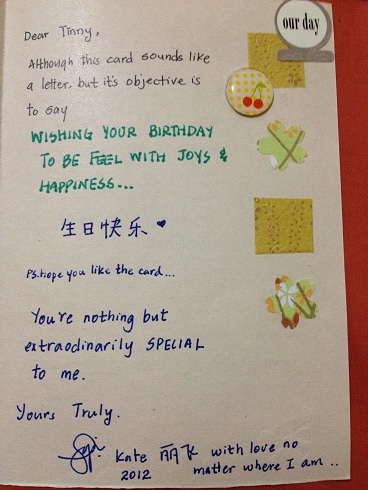 our day
Dear Tinny,
Although this card sounds like
a letter. but it's objective is
to say
WISHING YOUR BIRTHDAY
TO BE FEEL WITH JOYS &
HAPPINESS...
生日快乐
Ps.hope you like the card...
You're nothing but
extraodinarily SPECIAL
to me.
Yours Truly.
Kate 丽飞 with love no
2012 matter where I am ..